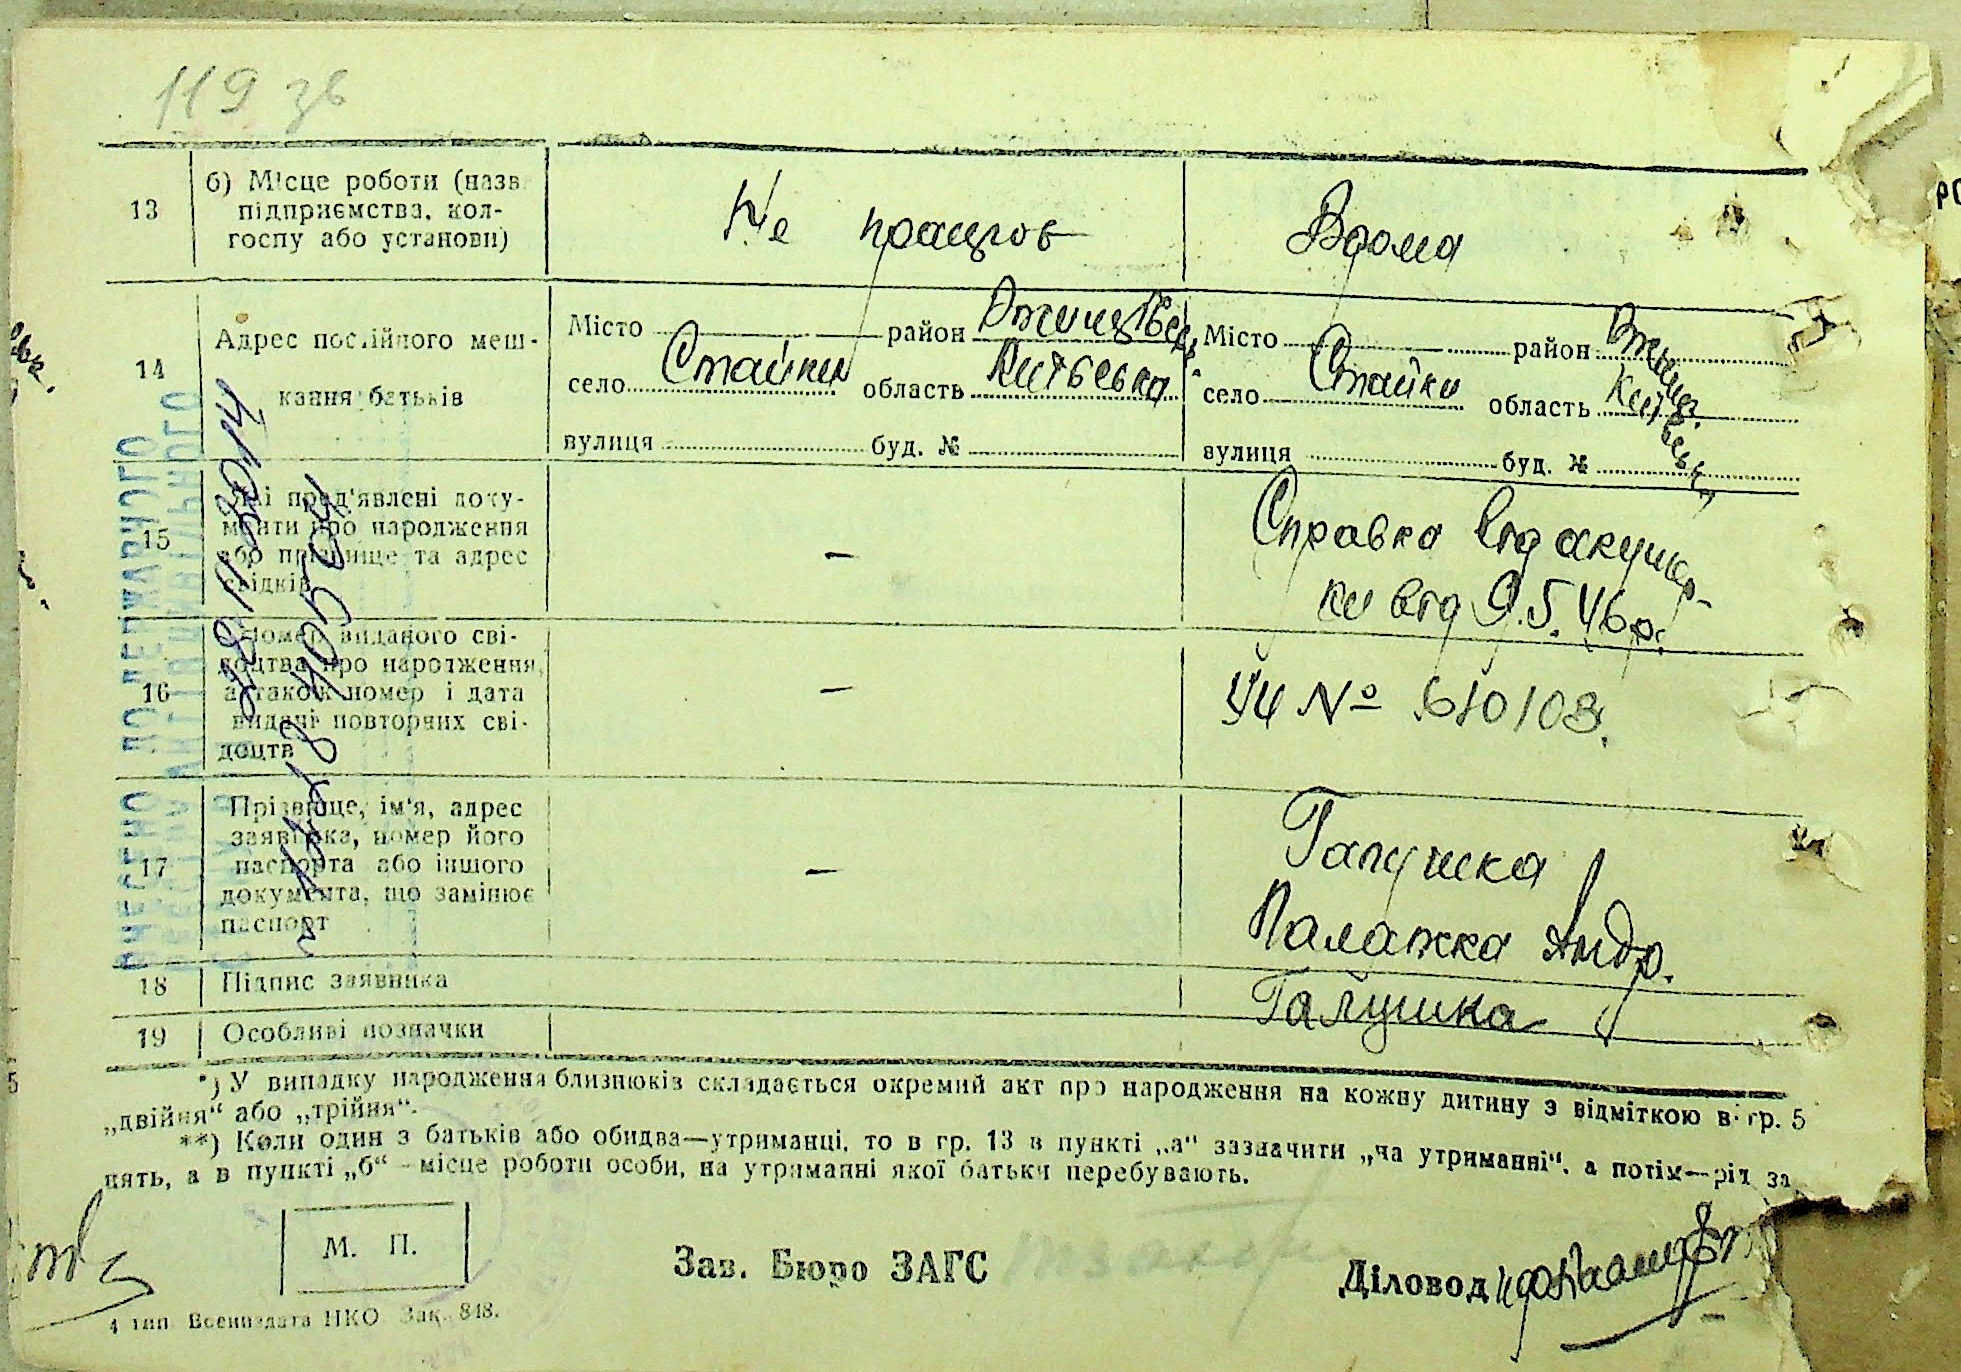 119 зв
13
б) Місце роботи (назв
підприємства, кол-
госпу або установи)
Не працюв
Вдома
14
Адрес постійного меш-
кання батьків
Місто район Ржищівськ.
село Стайки область Київська
вулиця буд. №
Місто район Ржищ.
село Стайки область Київська
вулиця буд. №
15
Які пред'явлені доку-
менти про народження
або прізвище та адрес
свідків
—
Справка від акушер-
ки від 9.5.46р.
16
Номер виданого сві-
доцтва про народження,
а також номер і дата
видачі повторних сві-
доцтв
—
УЧ № 610103.
17
Прізвище, ім'я, адрес
заявника, номер його
паспорта або іншого
документа, що замінює
паспорт
—
Галушка
Палажка Андр.
18
Підпис заявника
Галушка
19
Особливі позначки
ВНЕСЕНО ДО ДЕРЖАВНОГО
*) У випадку народження близнюків складається окремий акт про народження на кожну дитину з відміткою в гр. 5
„двійня“ або „трійня“.
**) Коли один з батьків або обидва—утриманці, то в гр. 13 в пункті „а“ зазначити „на утриманні“, а потім—рід за
нять, а в пункті „б“ - місце роботи особи, на утриманні якої батьки перебувають.
М. П.
Зав. Бюро ЗАГС
Діловод
4 тип Воениздата НКО Зак. 848.